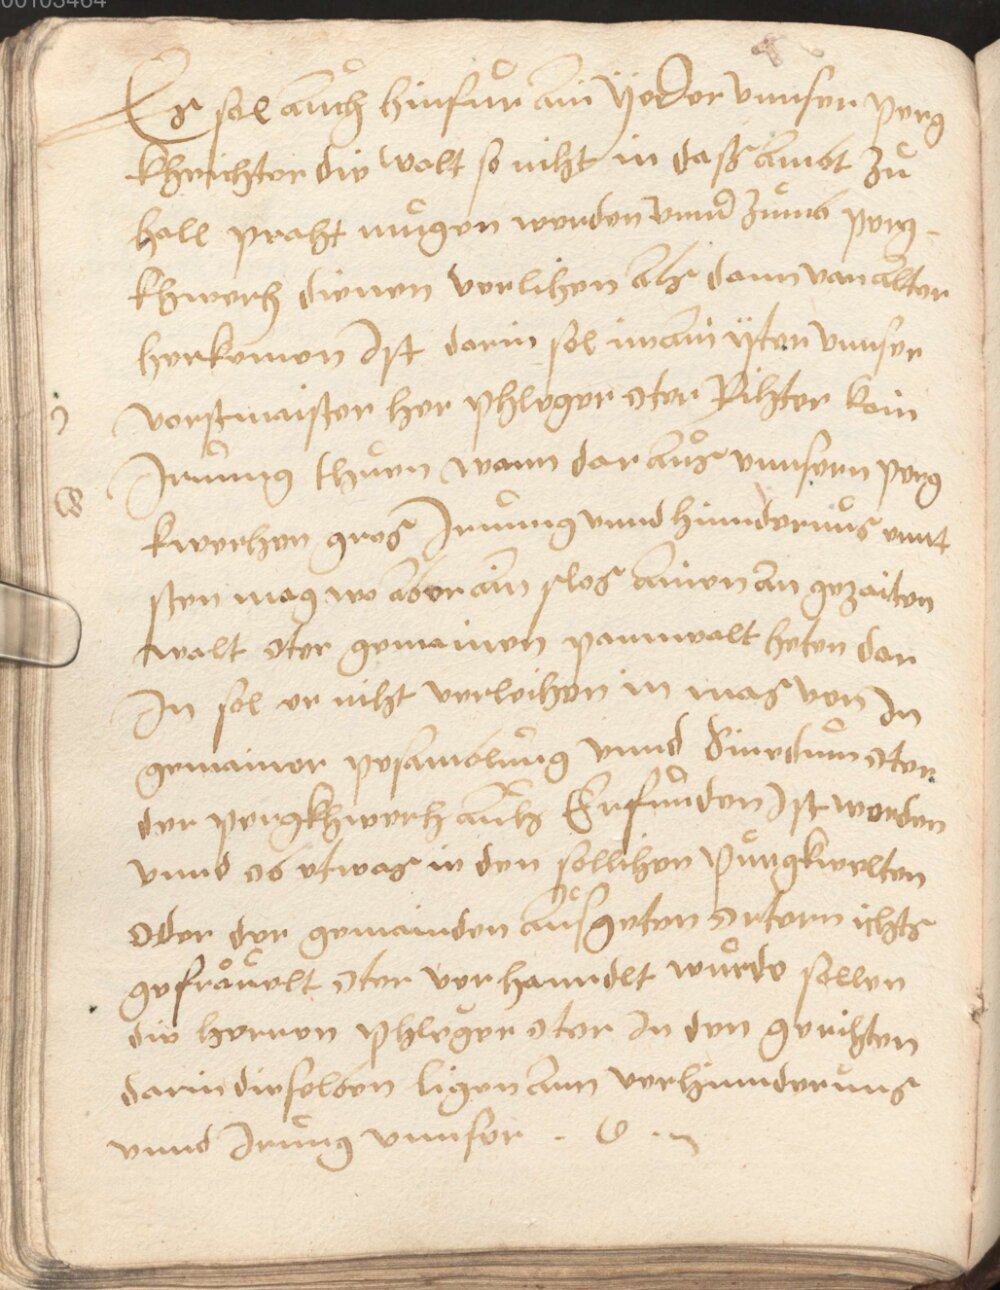 00103464
Es sol auch hinfur ain Yeder vnnser perg
khrichter die walt so niht in daß ambt zu
hall praht mugen werden vnnd zumb perg-
khwerh dienen verlihen als dann von alter
herkomen Ist darin sol im ain yter vnnser
vorstmaister her phleger oter Rihter kain
Irung thuen wann dar aus vnnsern perg
kwerhen gros Irrung vnnd hindernus ennt
sten mag wo aber ain slos ainen an gezaiten
walt oter gemainen pannwalt heten dar
In sol er niht verleihen in mas von In
gemainer pesamblung vnnd Sinedum oter
der pergkhwerh auch Erfunden Ist worden
vnnd ob etwas in den sollihen purgkwelten
oder der gemainden ausgeten Ortern ichts
gefräuelt oter verhanndlt wurde sollen
die herren phleger oter In den gerihten
darin dieselben ligen ann verhinnderung
vnnd Irrung vnnser